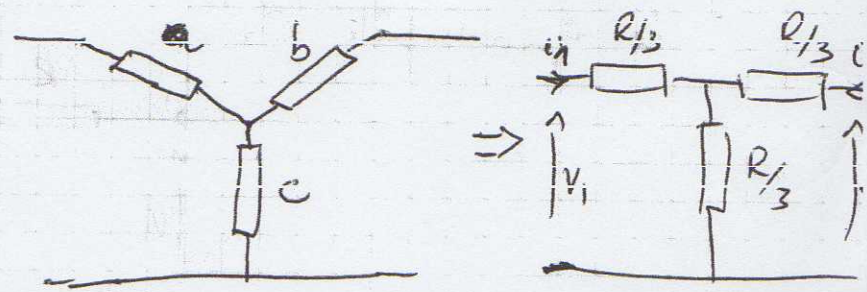 a b
c
⇒
i1 R/3 R/3 i
V1 R/3